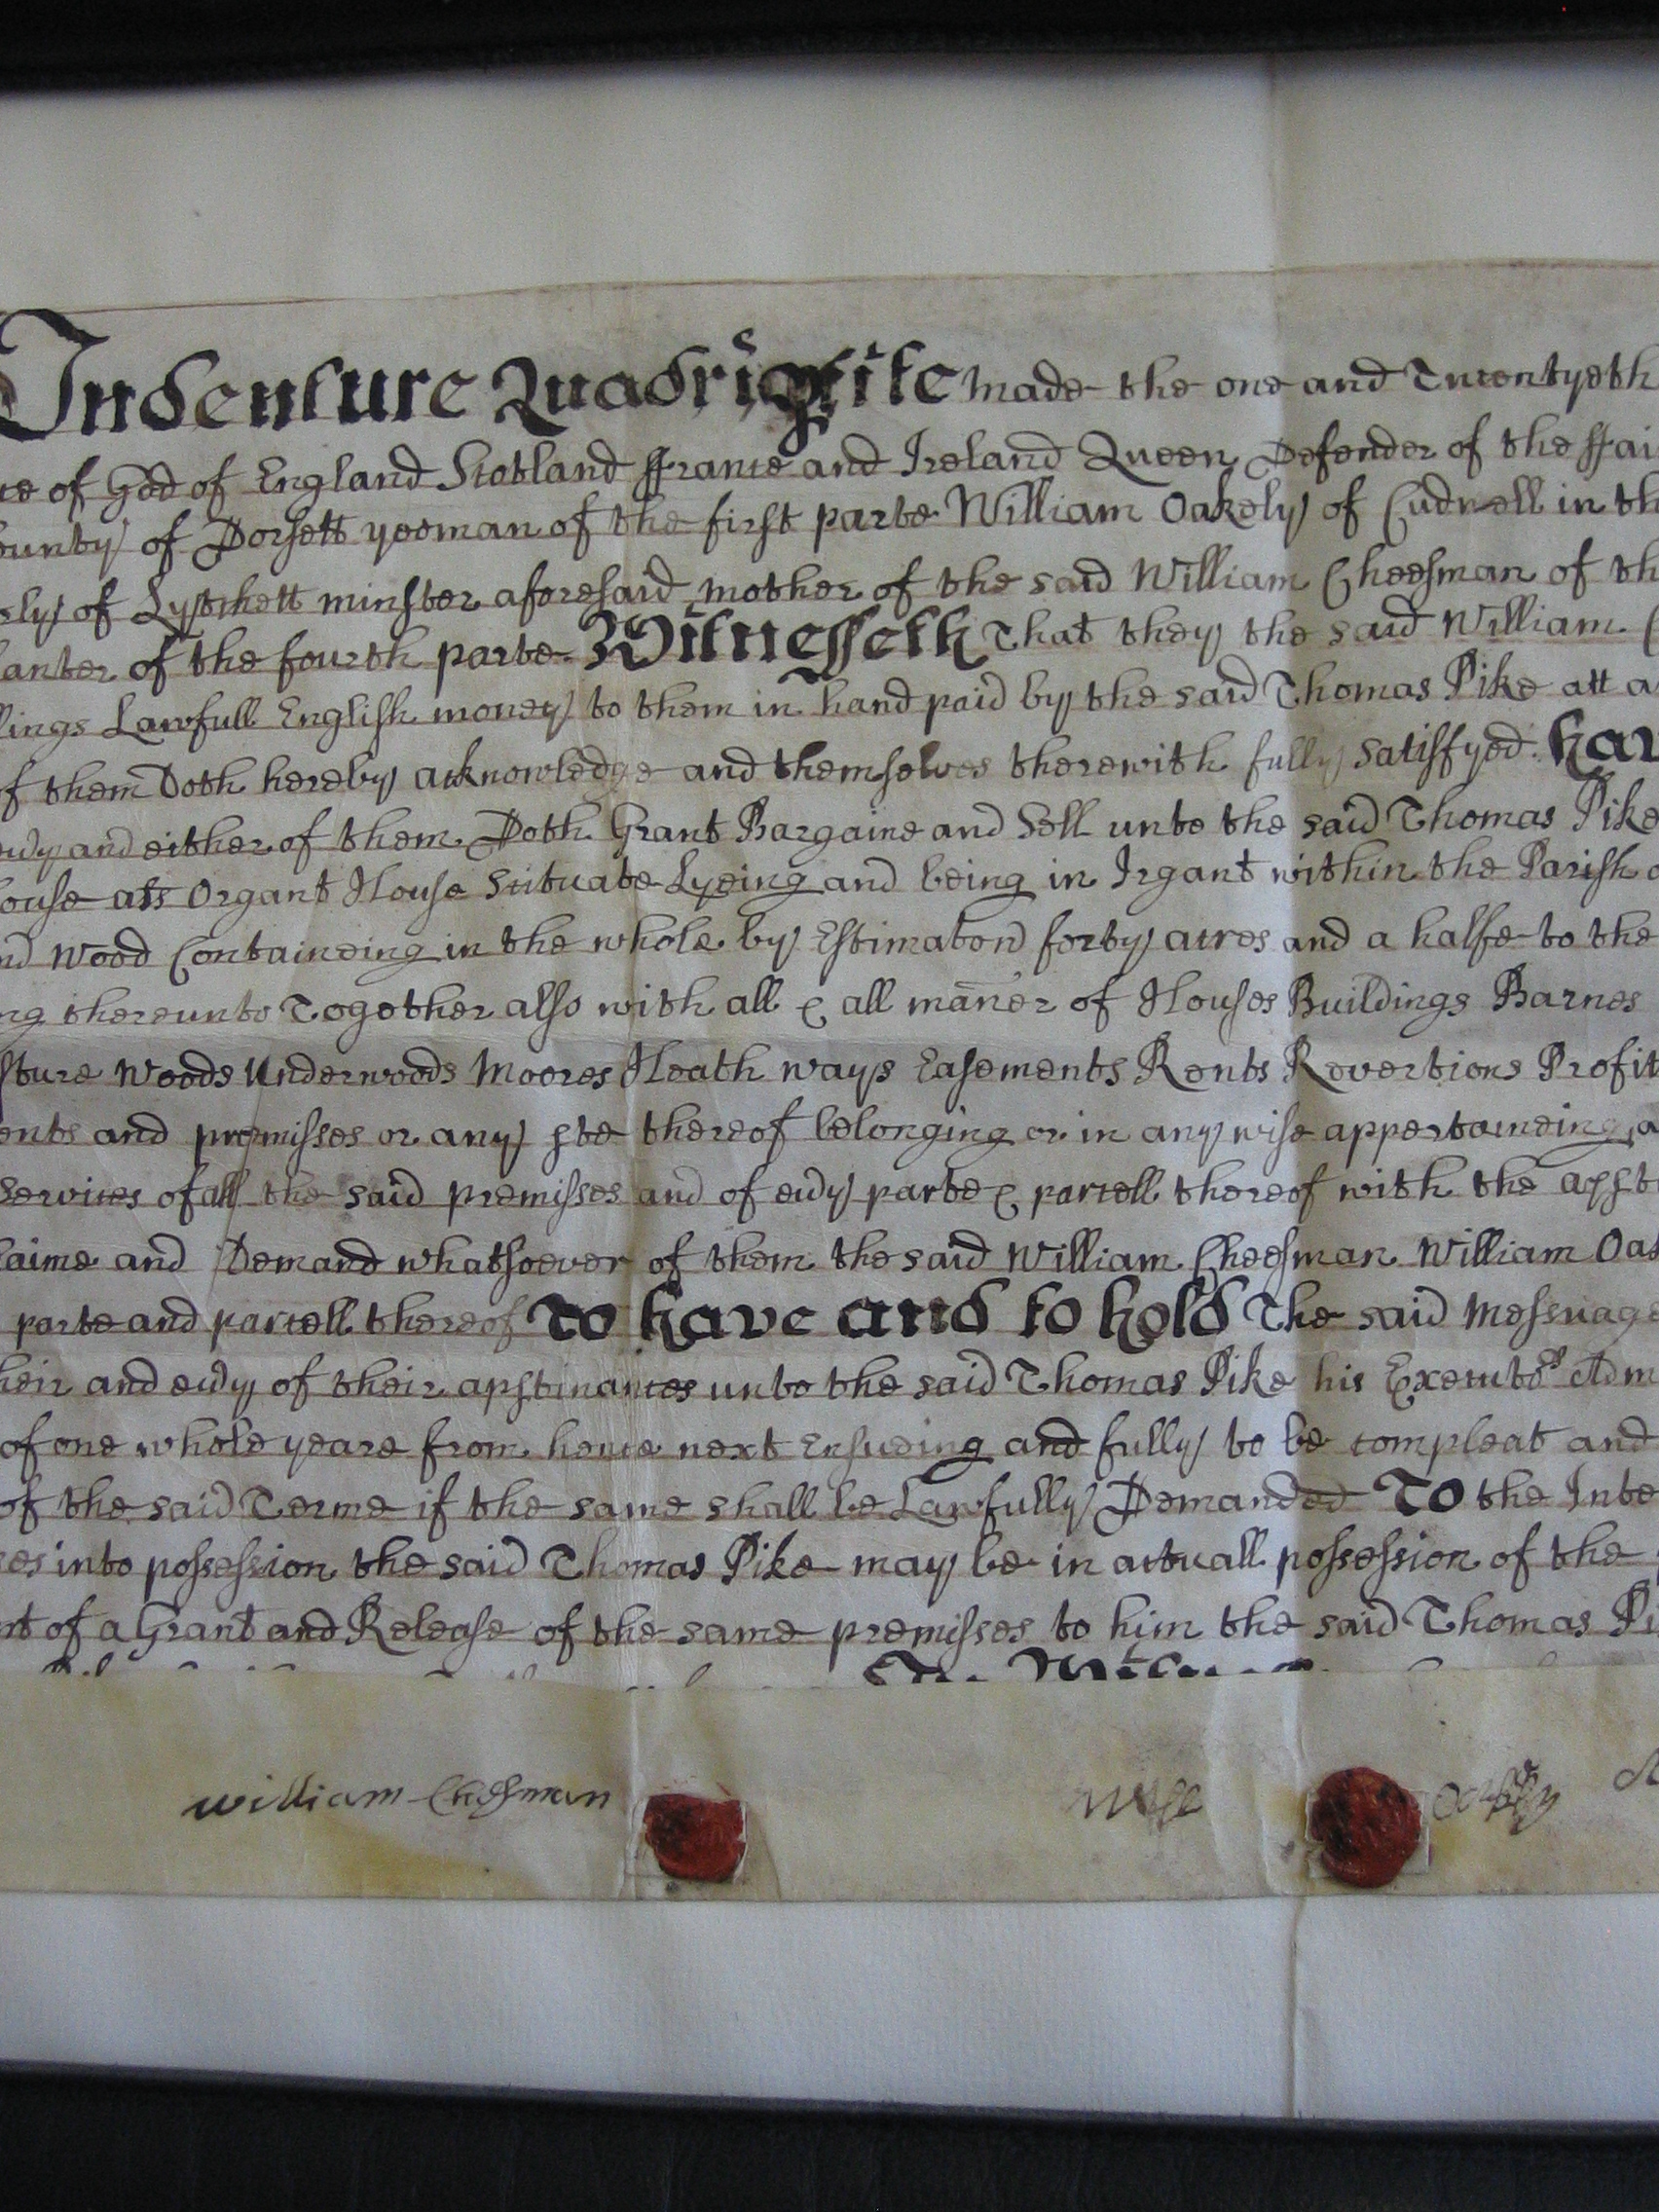 Indenture Quadripartite made the one and Twentyeth
ce of God of England Scotland ffrance and Ireland Queen Defender of the ffai
ounty of Dorsett yeoman of the first parte William Oakely of Cudnell in th
ely of Lytchett minster aforesaid mother of the said William Cheesman of th
anter of the fourth parte Witnesseth That they the said William C
lings Lawfull English money to them in hand paid by the said Thomas Pike att a
of them Doth hereby acknowledge and themselves therewith fully satisfyed hav
evy and either of them Doth Grant Bargaine and Sell unto the said Thomas Pike
ouse als Organt House Scituate Lyeing and being in Irgant within the Parish o
nd Wood Containeing in the whole by Estimacon forty acres and a halfe to the
ng thereunto Together also with all & all maner of Houses Buildings Barnes
sture Woods Underwoods Moores Heath ways Easements Rents Revertions Profit
ents and premisses or any pte thereof belonging or in any wise appertaineing a
Services of all the said premisses and of evy parte & parcell thereof with the appt
laime and Demand whatsoever of them the said William Cheesman William Oa
parte and parcell thereof To have and to hold The said Messuage
heir and evy of their apptinances unto the said Thomas Pike his Executors Adm
of one whole yeare from hence next Ensueing and fully to be compleat and
of the said Terme if the same shall be Lawfully Demanded To the Inte
es into possession the said Thomas Pike may be in actuall possession of the
nt of a Grant and Release of the same premisses to him the said Thomas Pi
william Cheesman Will Oakely